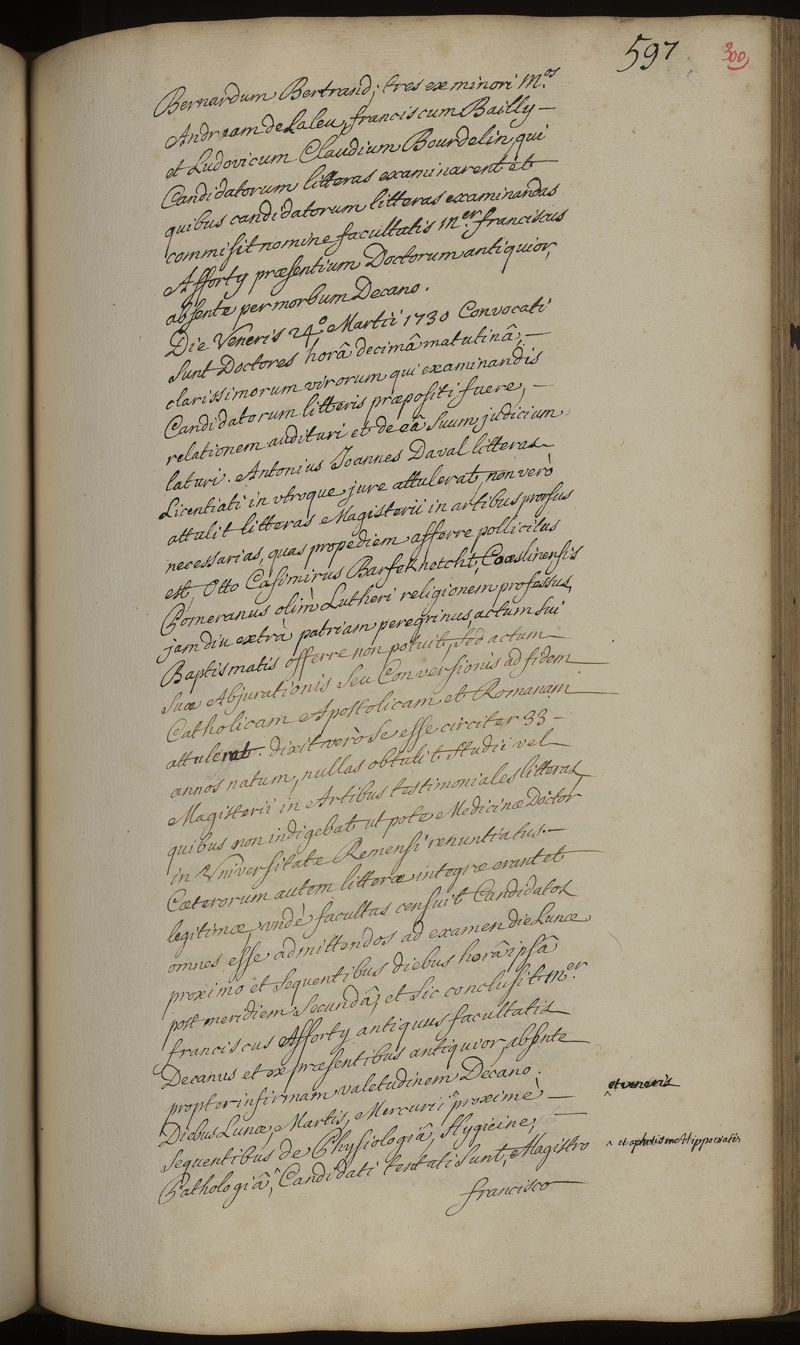 597
300
Bernardum Bertrand; tres ex minori M.os
Andream de Laleu, franciscum Bailly —
et Ludovicum Claudium Bourdelin, qui
Candidatorum litteras examinarent et
quibus candidatorum litteras examinandas
commisit nomine facultatis M.er franciscus
Afforty præsentium Doctorum antiquior,
absente per morbum Decano.
Die Veneris 24.o Martii 1730 Convocati
sunt Doctores horâ decimâ matutinâ, —
clarissimorum virorum qui examinandis
Candidatorum litteris præpositi fuere, —
relationem audituri et de eâ suum judicium
laturi. Antonius Joannes Daval litteras
Licentiati in utroque jure attulerat, non verò
attulit litteras Magisterii in artibus prorsus
necessarias, quas propediem afferre pollicitus
est, Otto Casimirus Barfeknetcht, Coeslinensis
Pomeranus olim Lutheri religionem professus,
jamdiu extrà patriam peregrinus, actum sui
Baptismatis offerre non potuit, sed actum
suæ Abjurationis seu Conversionis ad fidem
Catholicam Apostolicam et Romanam
attulerat. dixit verò se esse circiter 33 –
annos natum, nullas obtulit studii vel
Magisterii in Artibus testimoniales litteras,
quibus non indigebat ut pote Medicinæ Doctor
in Universitate Remensi renuntiatus. —
Cæterorum autem litteræ integræ erant et
legitimæ, undè facultas censuit Candidatos
omnes esse admittendos ad examen die Lunæ
proximo et sequentibus diebus horâ ipsâ
post meridiem secundâ; et sic conclusit M.er
franciscus Afforty antiquus facultatis
Decanus et ex præsentibus antiquior, absente
propter infirmam valetudinem Decano.
Diebus Lunæ, Martis, Mercurii ^ proximè —
^ et veneris
sequentibus de Physiologiâ, Hygieine, —
Pathologiâ, ^ Candidati tentati sunt, Magistro
^ et aphorismo Hippocratis
francisco